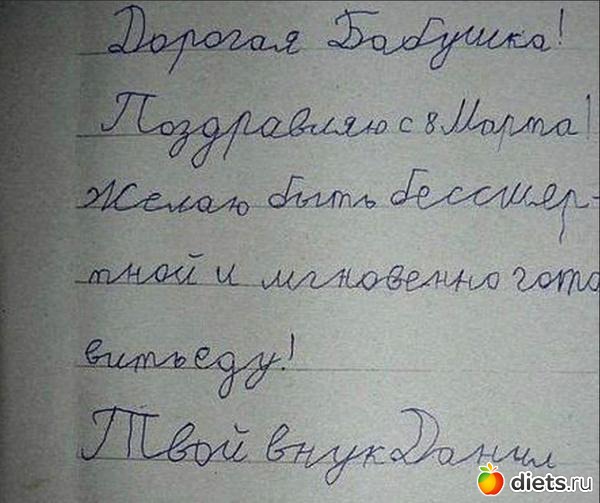 Дорогая Бабушка!
Поздравляю с 8 Марта!
Желаю быть бессмер-
тной и мгновенно гото
вить еду!
Твой внук Данил
diets.ru